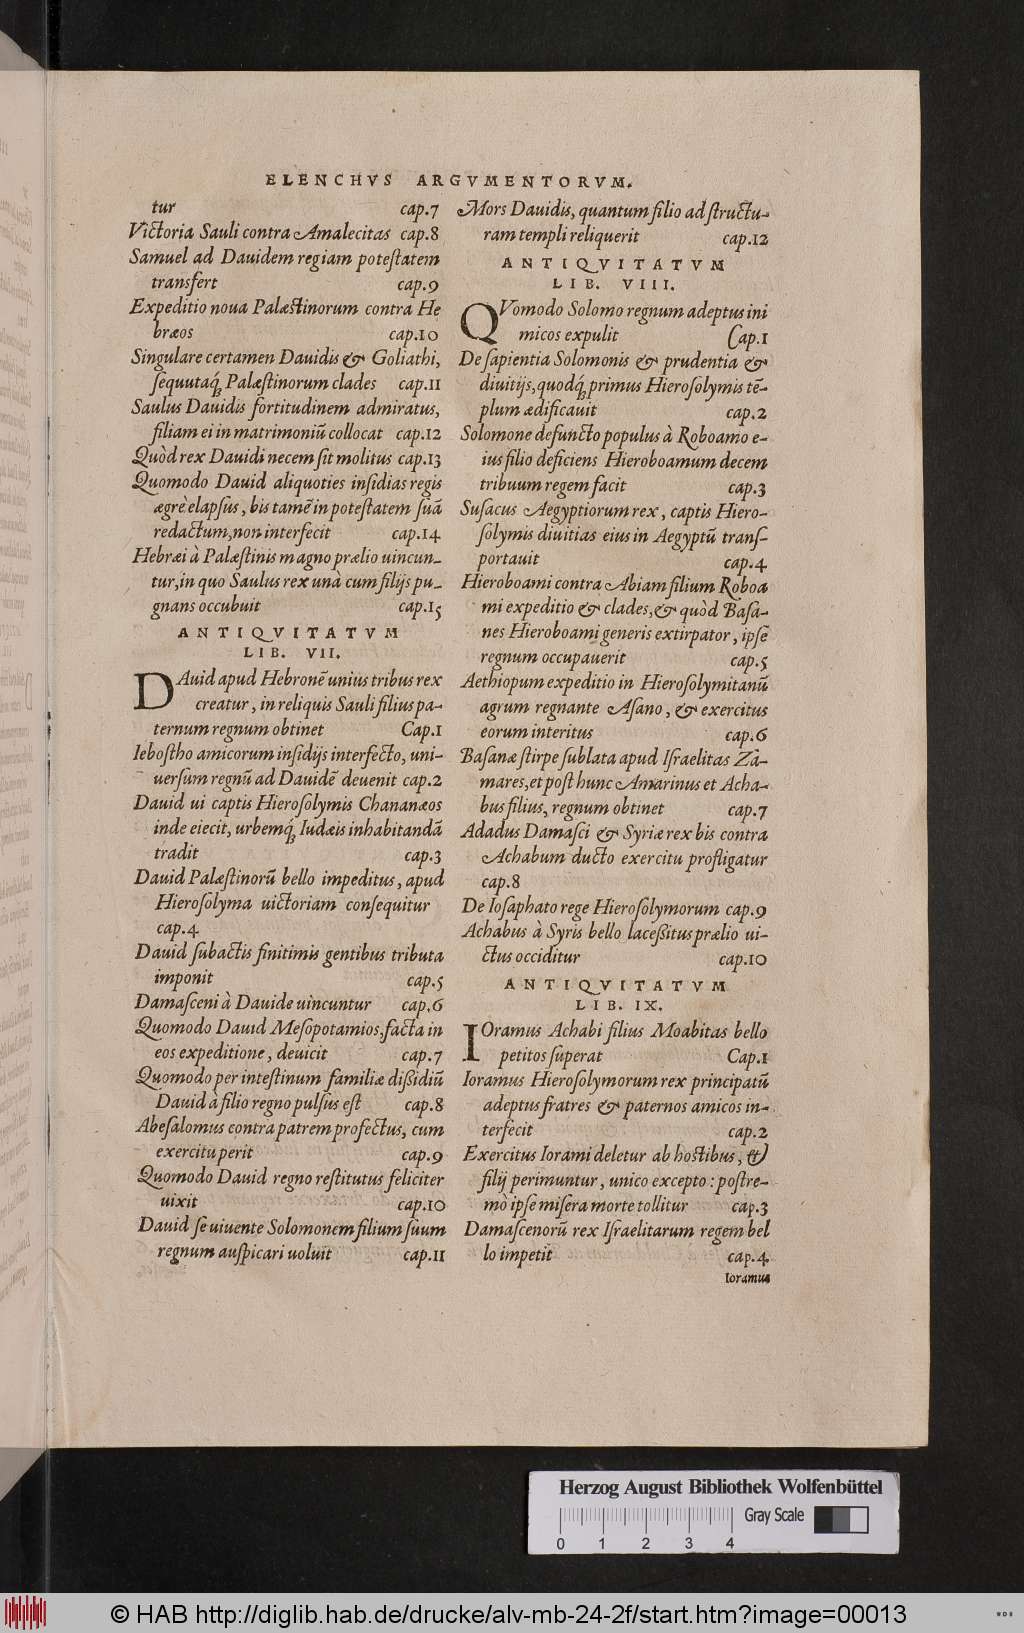 ELENCHVS ARGVMENTORVM.
tur cap.7
Victoria Sauli contra Amalecitas cap.8
Samuel ad Dauidem regiam poteſtatem
transfert cap.9
Expeditio noua Palæſtinorum contra He
bræos cap.10
Singulare certamen Dauidis & Goliathi,
ſequutaq́ꝫ Palæſtinorum clades cap.11
Saulus Dauidis fortitudinem admiratus,
filiam ei in matrimoniū collocat cap.12
Quòd rex Dauidi necem ſit molitus cap.13
Quomodo Dauid aliquoties inſidias regis
ægrè elapſus, bis tamē in poteſtatem ſuā
redactum, non interfecit cap.14
Hebræi à Palæſtinis magno prælio uincun-
tur, in quo Saulus rex unà cum filijs pu-
gnans occubuit cap.15
ANTIQVITATVM
LIB. VII.
DAuid apud Hebronē unius tribus rex
creatur, in reliquis Sauli filius pa-
ternum regnum obtinet Cap.1
Ieboſtho amicorum inſidijs interfecto, uni-
uerſum regnū ad Dauidē deuenit cap.2
Dauid ui captis Hieroſolymis Chananæos
inde eiecit, urbemq́ꝫ Iudæis inhabitandā
tradit cap.3
Dauid Palæſtinorū bello impeditus, apud
Hieroſolyma uictoriam conſequitur
cap.4
Dauid ſubactis finitimis gentibus tributa
imponit cap.5
Damaſceni à Dauide uincuntur cap.6
Quomodo Dauid Meſopotamios, facta in
eos expeditione, deuicit cap.7
Quomodo per inteſtinum familiæ dißidiū
Dauid à filio regno pulſus eſt cap.8
Abeſalomus contra patrem profectus, cum
exercitu perit cap.9
Quomodo Dauid regno reſtitutus feliciter
uixit cap.10
Dauid ſe uiuente Solomonem filium ſuum
regnum auſpicari uoluit cap.11
Mors Dauidis, quantum filio ad ſtructu-
ram templi reliquerit cap.12
ANTIQVITATVM
LIB. VIII.
QVomodo Solomo regnum adeptus ini
micos expulit Cap.1
De ſapientia Solomonis & prudentia &
diuitijs, quodq́ꝫ primus Hieroſolymis tē-
plum ædificauit cap.2
Solomone defuncto populus à Roboamo e-
ius filio deficiens Hieroboamum decem
tribuum regem facit cap.3
Suſacus Aegyptiorum rex, captis Hiero-
ſolymis diuitias eius in Aegyptū tranſ-
portauit cap.4
Hieroboami contra Abiam filium Roboa
mi expeditio & clades, & quòd Baſa-
nes Hieroboami generis extirpator, ipſe
regnum occupauerit cap.5
Aethiopum expeditio in Hieroſolymitanū
agrum regnante Aſano, & exercitus
eorum interitus cap.6
Baſanæ ſtirpe ſublata apud Iſraelitas Za-
mares, et poſt hunc Amarinus et Acha-
bus filius, regnum obtinet cap.7
Adadus Damaſci & Syriæ rex bis contra
Achabum ducto exercitu profligatur
cap.8
De Ioſaphato rege Hieroſolymorum cap.9
Achabus à Syris bello laceßitus prælio ui-
ctus occiditur cap.10
ANTIQVITATVM
LIB. IX.
IOramus Achabi filius Moabitas bello
petitos ſuperat Cap.1
Ioramus Hieroſolymorum rex principatū
adeptus fratres & paternos amicos in-
terfecit cap.2
Exercitus Iorami deletur ab hoſtibus, &
filij perimuntur, unico excepto: poſtre-
mò ipſe miſera morte tollitur cap.3
Damaſcenorū rex Iſraelitarum regem bel
lo impetit cap.4
Ioramus
Herzog August Bibliothek Wolfenbüttel
Gray Scale
0 1 2 3 4
© HAB http://diglib.hab.de/drucke/alv-mb-24-2f/start.htm?image=00013